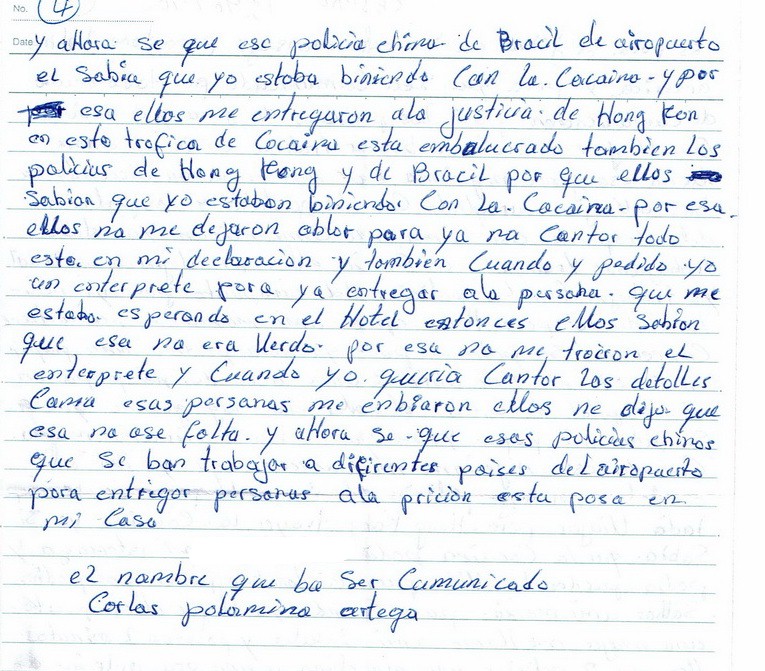 No. 4
Date y aHora se que ese policia chino de Bracil de airopuerto
el sabia que yo estoba biniendo Con la. Cocaina - y por
esa ellos me entregaron ala justicia. de Hong Kon
en esto trofica de Cocaina esta embalucrado tombien Los
policias de Hong Kong y de Bracil por que ellos
Sabian que yo estaban biniendo. Con La. Cocaina - por esa.
ellos na me dejaron ablor para ya na Contor todo
esto. en mi declaracion y tombien Cuando y pedido yo
un enterprete para ya entregar ala persona. que me
estaba. esperando en el Hotel entonces ellos Sabion
que esa na era Verdo. por esa na me troiron el
enterprete y Cuando yo. queria Contor Los detolles
Coma esas personas me enbiaron ellos ne dijo que
esa no ase folta. y aHora se - que esos policias chinos
que se ban trabajor a difirentes poises del airopuerto
pora entregor personas ala pricion esta posa en
mi Casa

el nombre que ba Ser Comunicado
Corlos polomino ortega